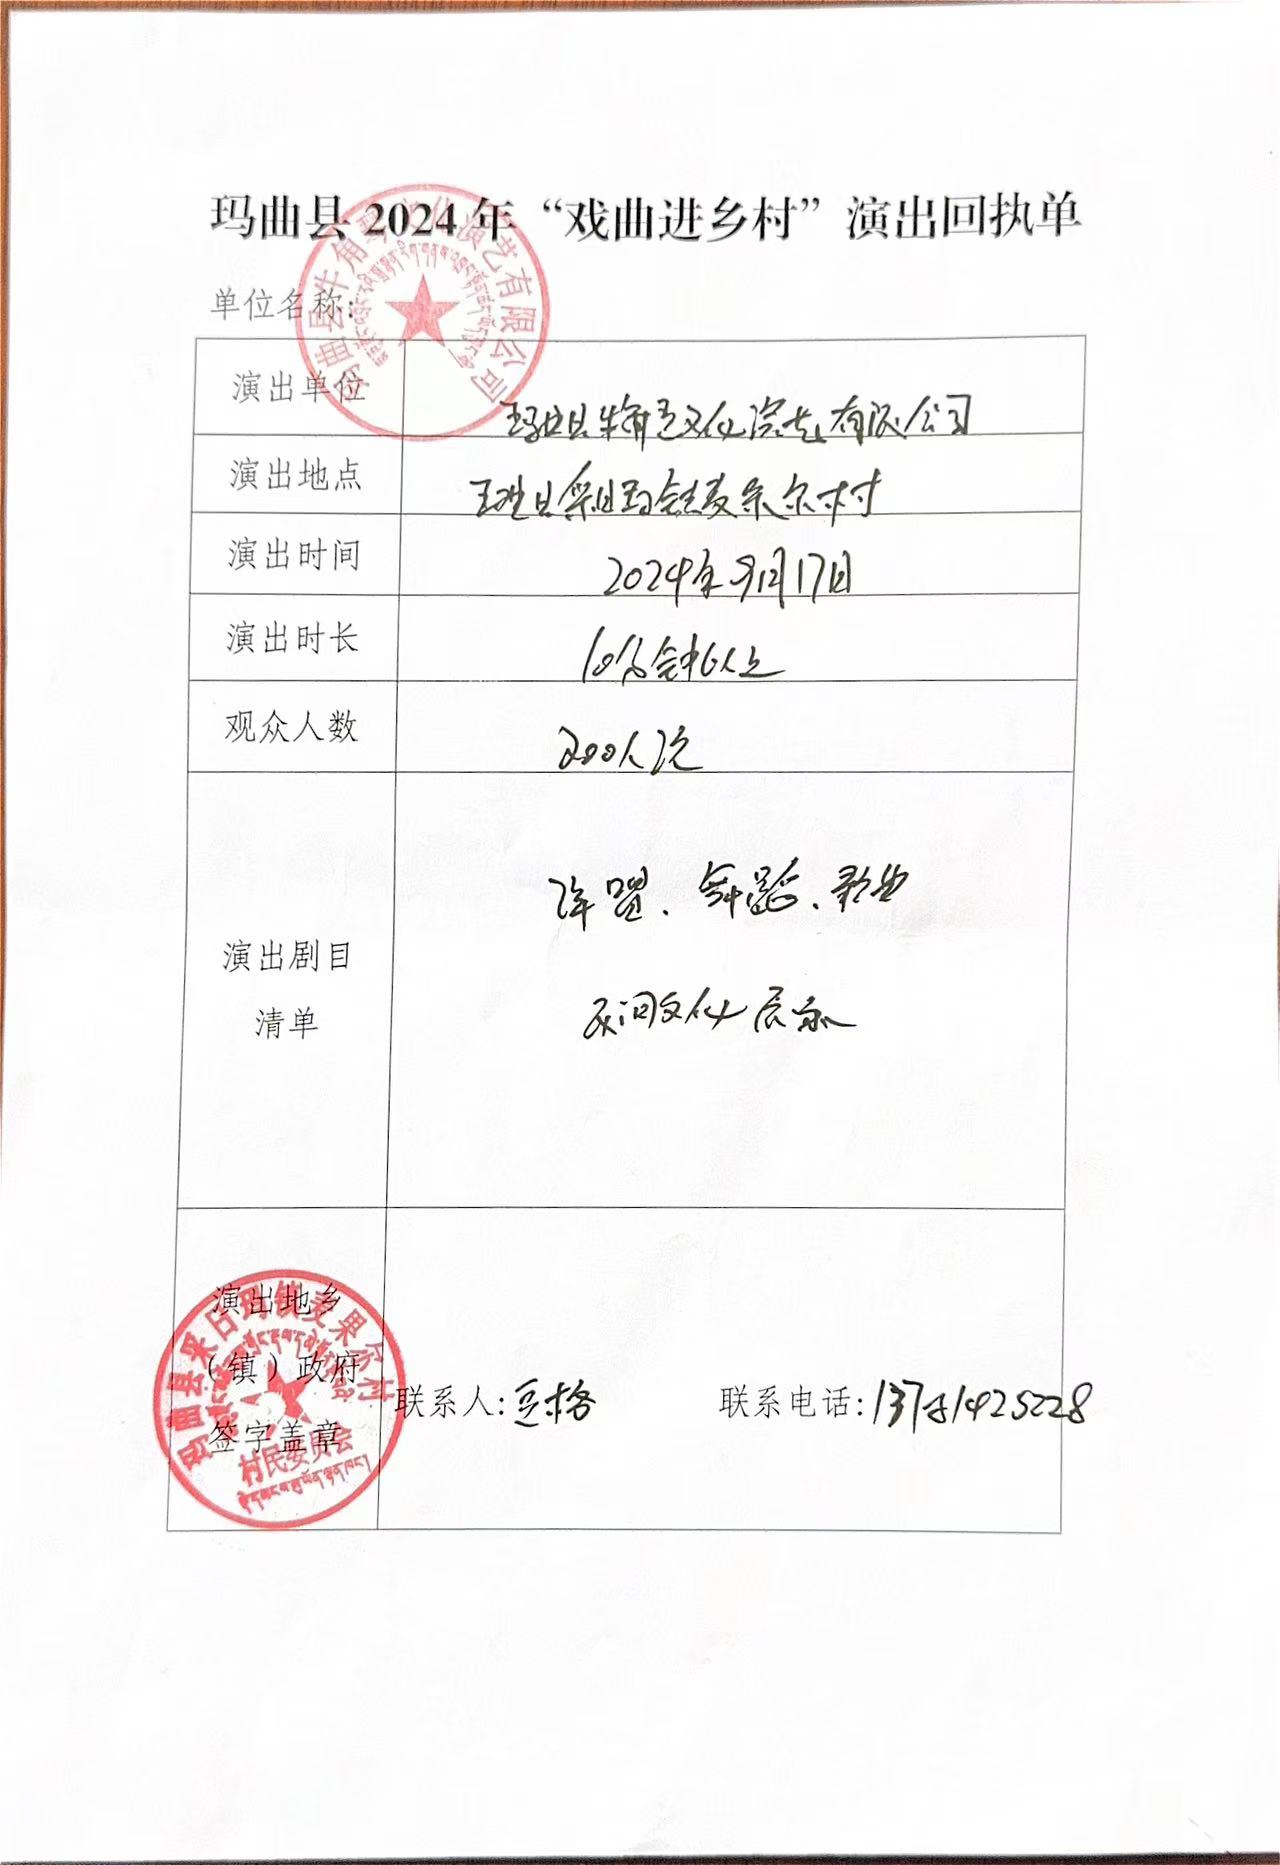 玛曲县2024年“戏曲进乡村”演出回执单
单位名称:
演出单位
玛曲县牛角琴文化演艺有限公司
演出地点
玛曲县采日玛镇麦果尔村
演出时间
2024年9月17日
演出时长
分钟以上
观众人数
200人次
演出剧目
清单
舞蹈、歌曲
民间文化展示
演出地乡
(镇)政府
签字盖章
联系人:
联系电话:
玛曲县采日玛镇麦果尔村
村民委员会